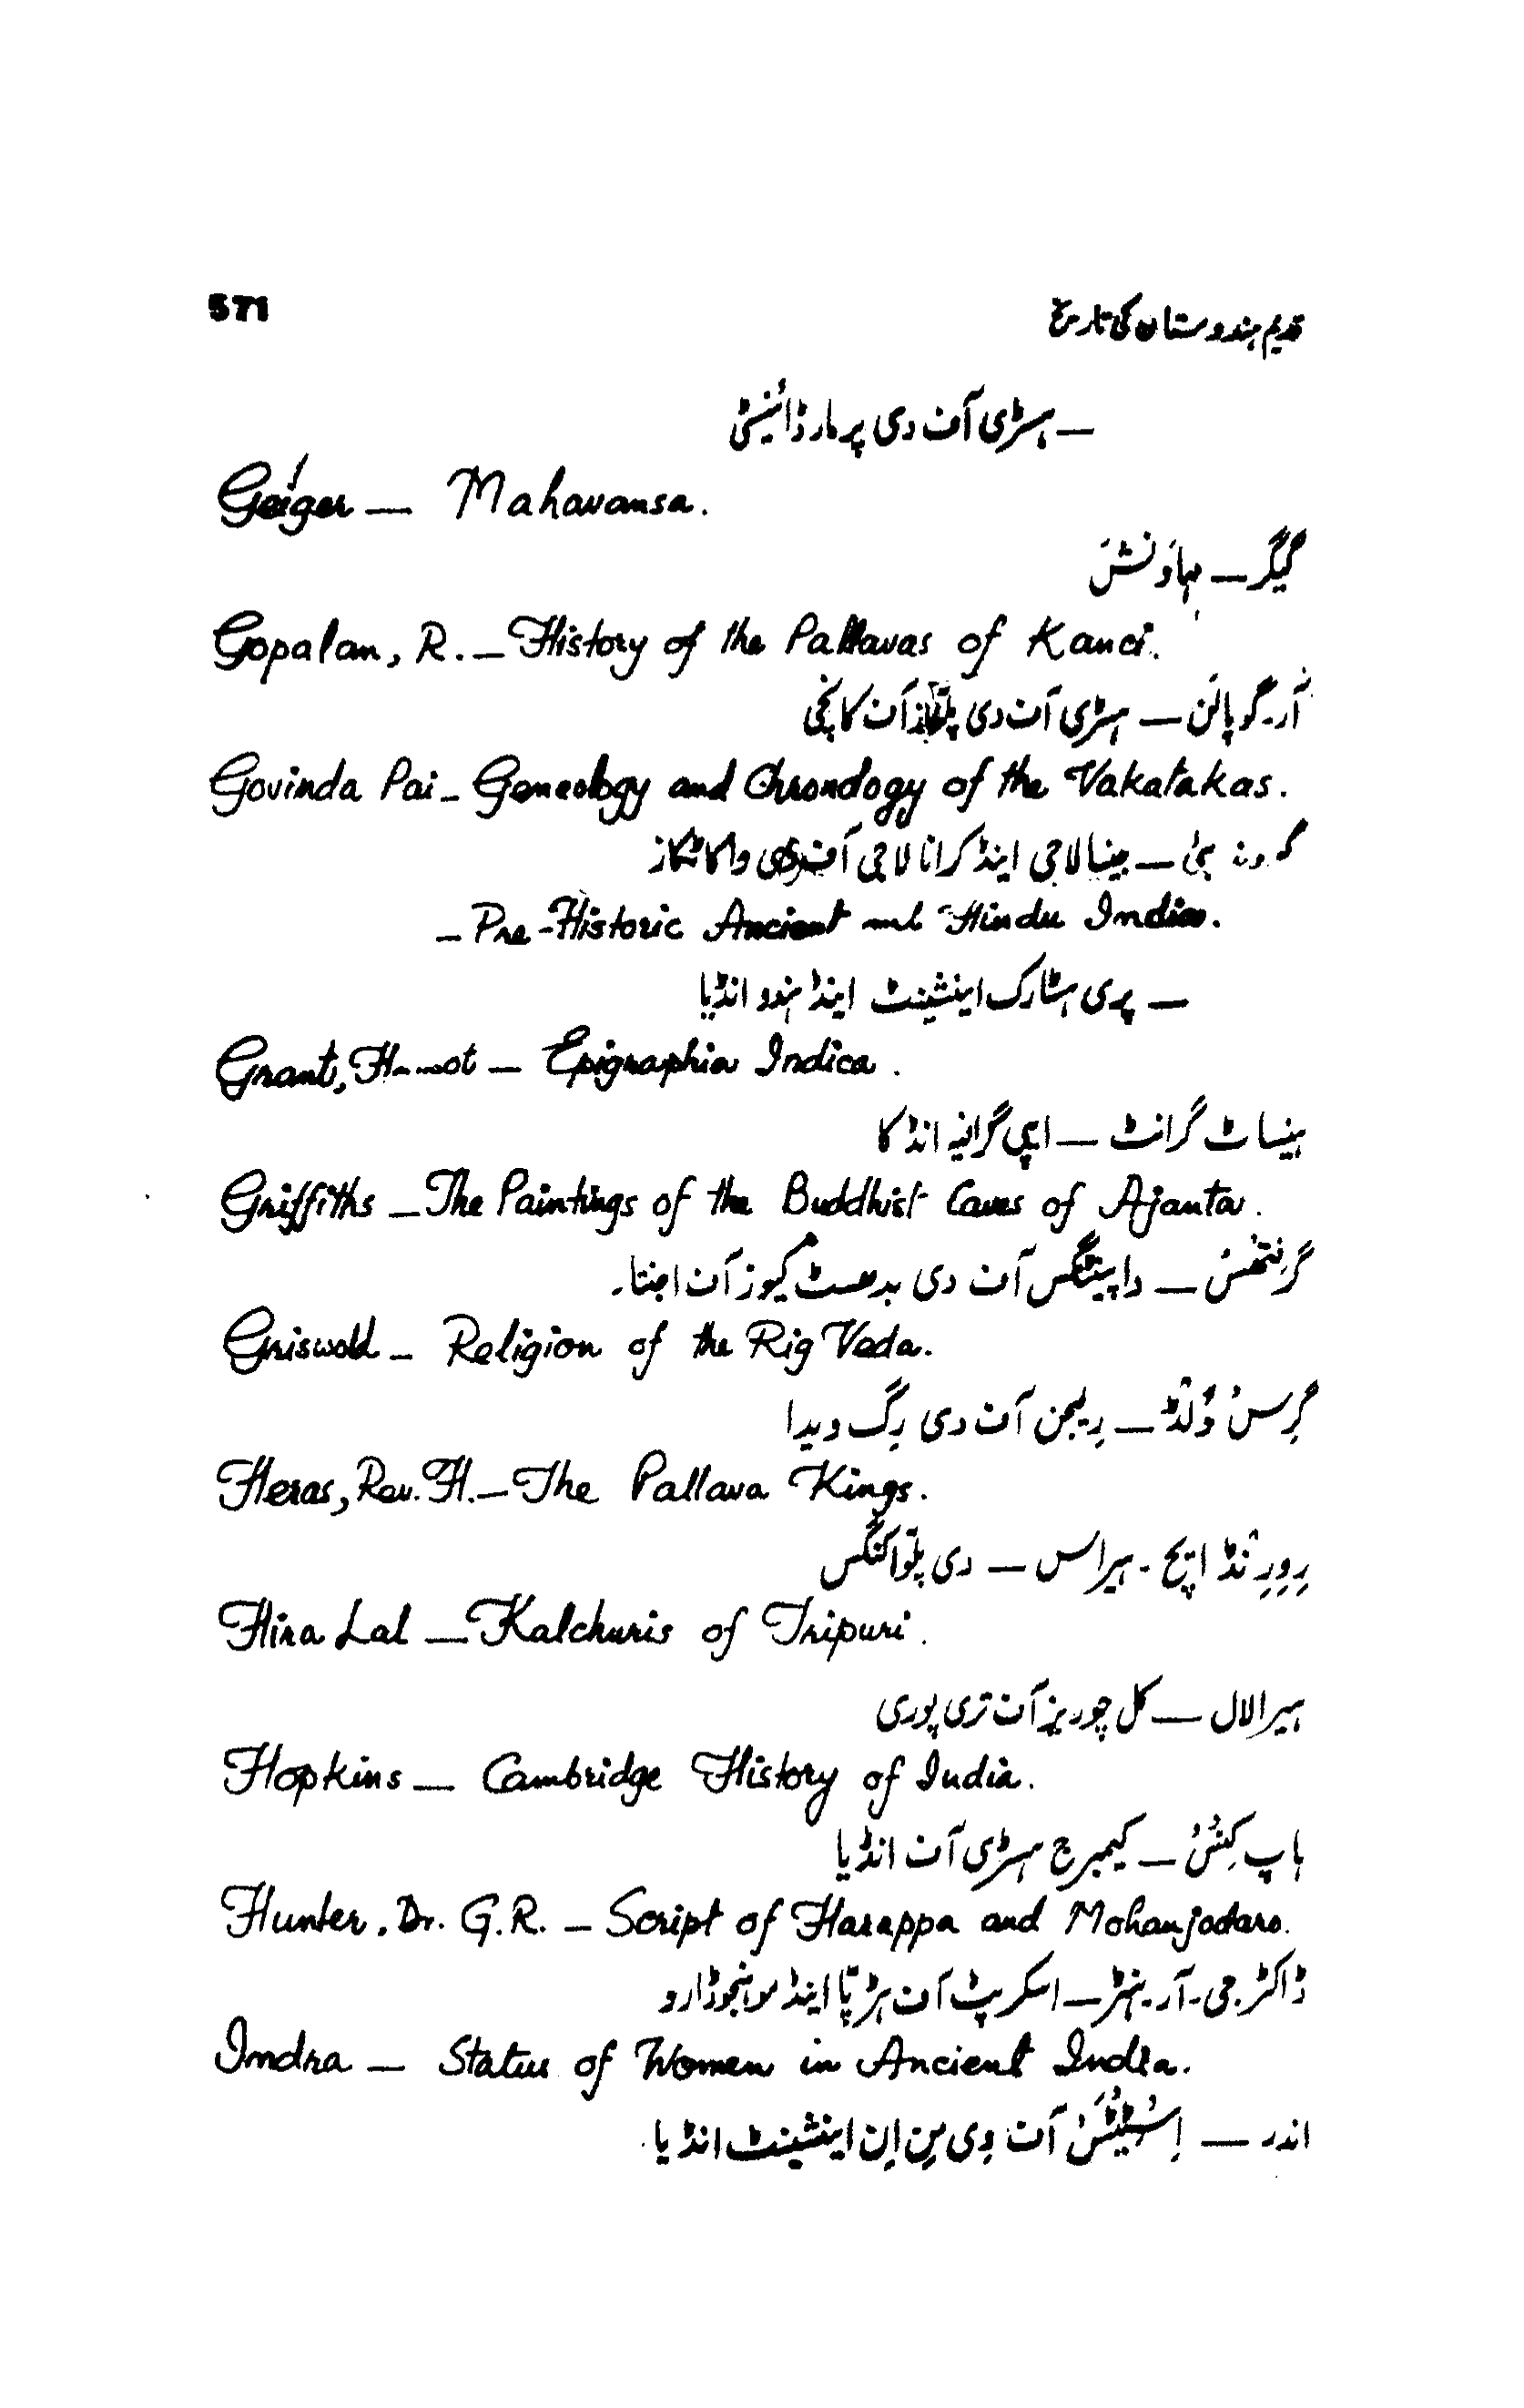 571
قدیم ہندوستان کی تاریخ
— ہسٹری آف دی پرمار ڈائنیسٹی
Geiger — Mahavansa.
گیگر — مہاونش
Gopalan, R. — History of the Pallavas of Kanci.
آر۔ گوپالن — ہسٹری آف دی پلواز آف کانچی
Govinda Pai - Geneology and Chronology of the Vakatakas.
پئی — جینیالاجی اینڈ کرانالاجی آف دی واکاٹکاز
- Pre-Historic Ancient and Hindu India.
— پری ہسٹارک اینشینٹ اینڈ ہندو انڈیا
Grant, — Epigraphia Indica.
گرانٹ — ایپی گرافیہ انڈکا
Griffiths — The Paintings of the Buddhist Caves of Ajanta.
گرفتھس — دا پینٹنگس آف دی بدھسٹ کیوز آف اجنتا۔
Griswold - Religion of the Rig Veda.
گرِسْ وُلڈْ — رِلیجن آف دی رِگ ویدا
Heras, Rev. H. — The Pallava Kings.
رِورِنْڈ ایچ۔ ہیراس — دی پلّوا کنگس
Hira Lal — Kalchuris of Tripuri.
ہیرا لال — کل چوریز آف تری پوری
Hopkins — Cambridge History of India.
ہاپ کِنْس — کیمبرج ہسٹری آف انڈیا
Hunter, Dr. G.R. — Script of Harappa and Mohanjodaro.
ڈاکٹر۔ جی۔ آر۔ ہنٹر — اسکرپٹ آف ہڑپّا اینڈ موہنجوڈارو
Indra — Status of Women in Ancient India.
اندر — اِسْٹیٹس آف وِی مِن اِن اینشینٹ انڈیا